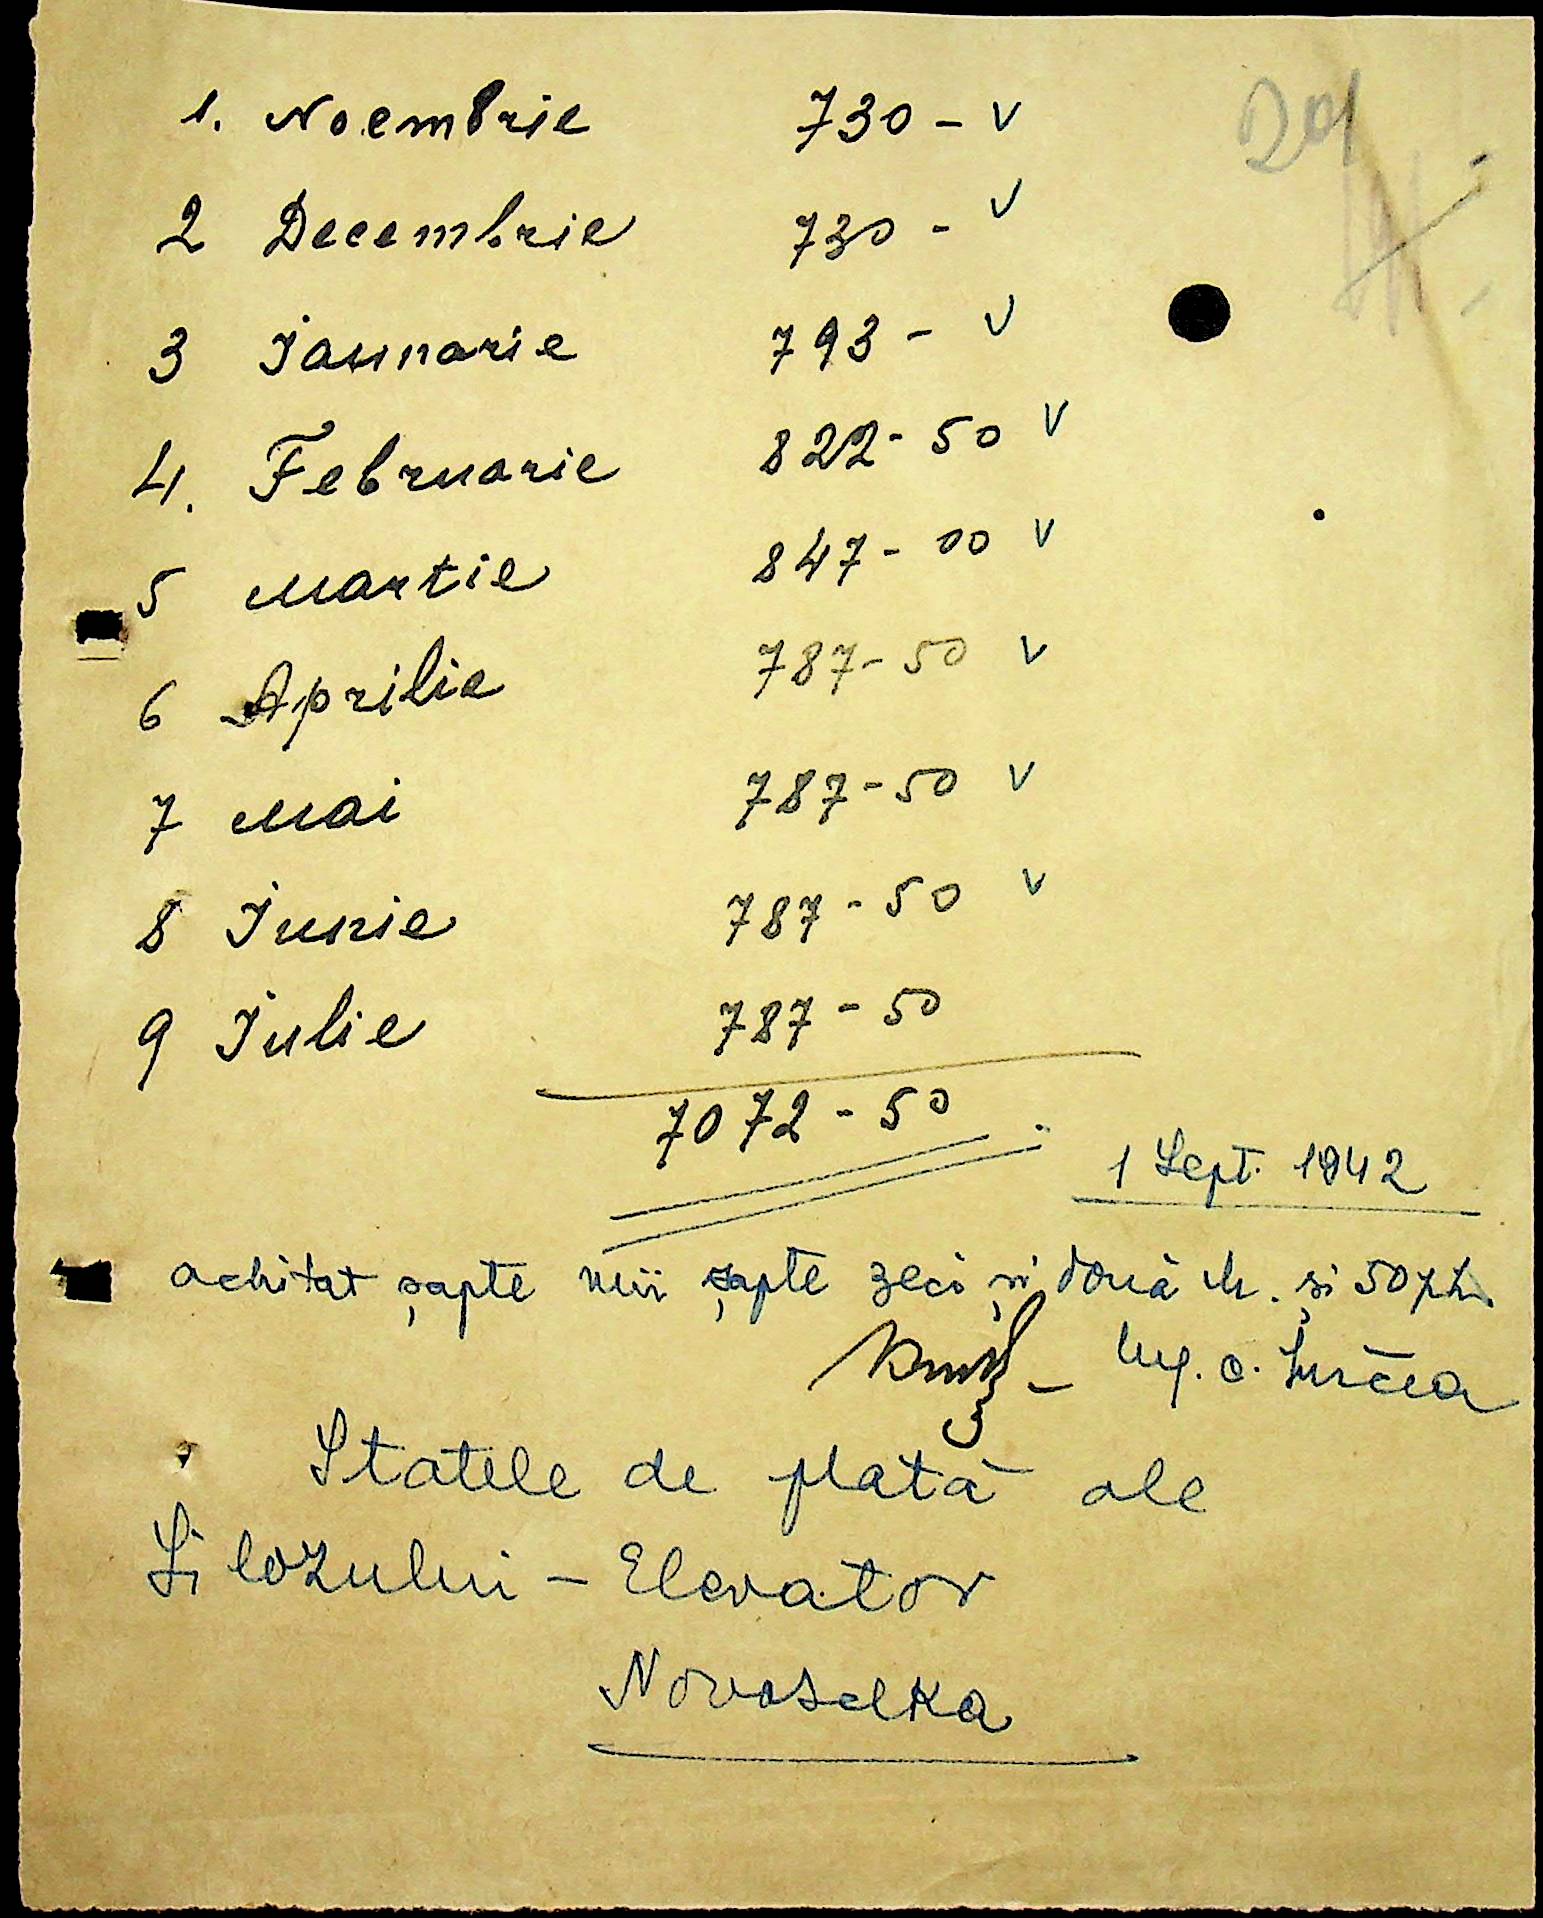 1. Noembrie 730 - v
2 Decembrie 730 - v
3 Ianuarie 793 - v
4. Februarie 822 - 50 v
5 Martie 847 - 00 v
6 Aprilie 787 - 50 v
7 Mai 787 - 50 v
8 Iunie 787 - 50 v
9 Iulie 787 - 50
7072 - 50
1 Sept. 1942
achitat șapte mii șapte zeci și două și 50
Statele de plată ale
Silozului - Elevator
Novoselka